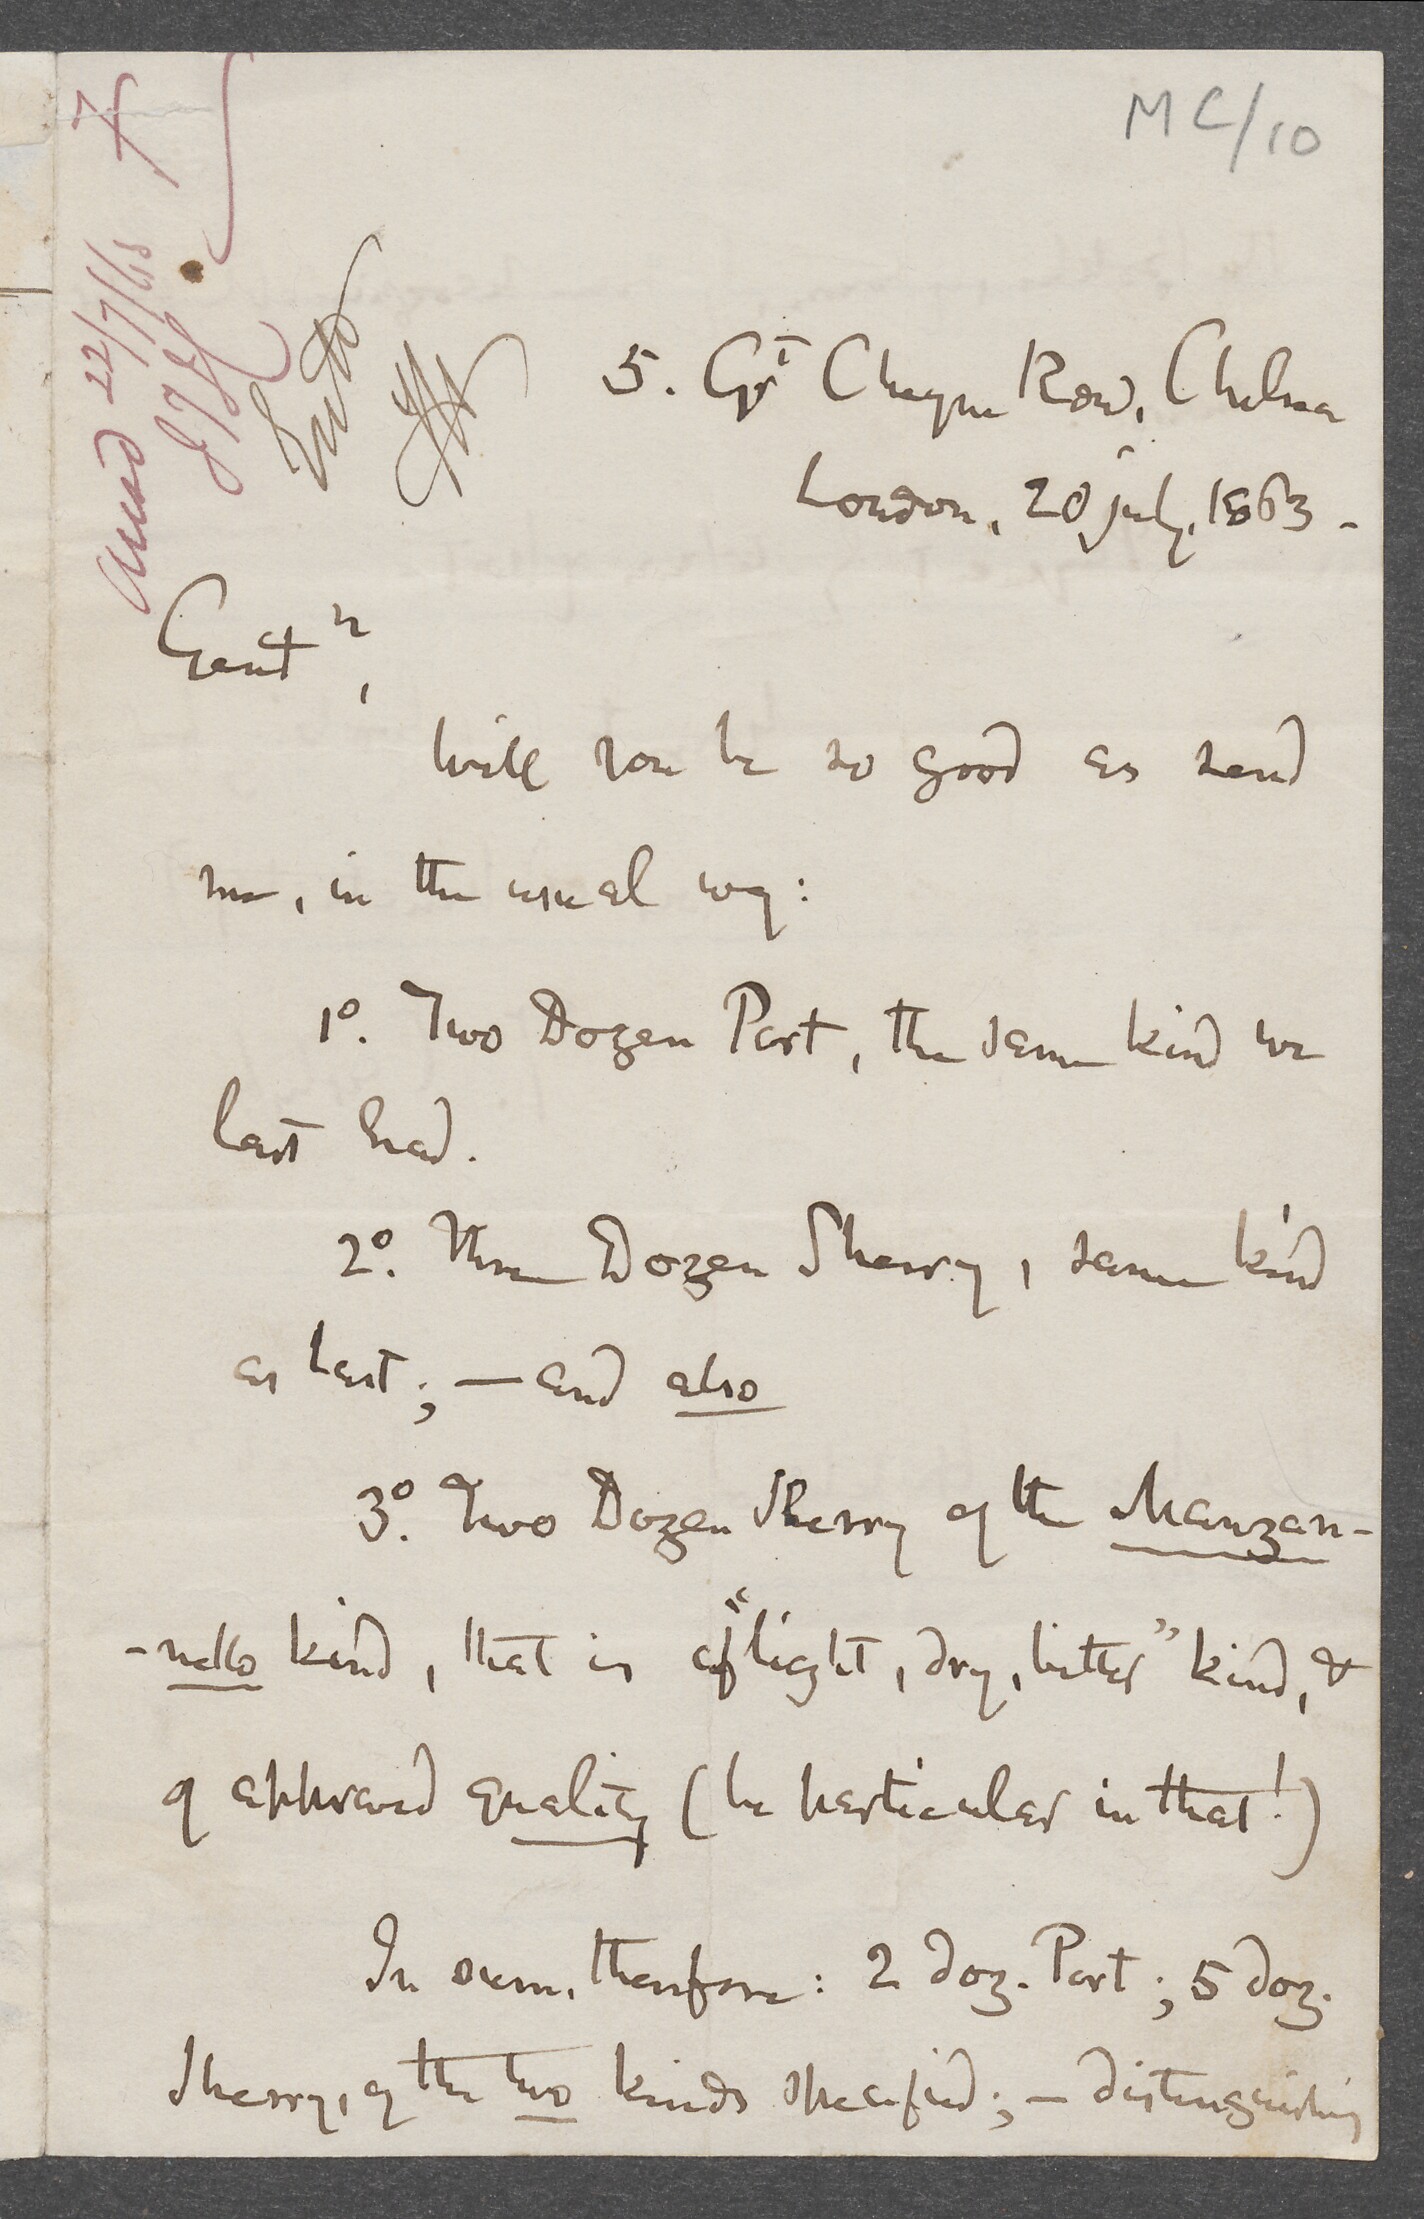 MC/10
Ansd 22/7/63
5. Gt Cheyne Row, Chelsea
London, 20 july, 1863 -
Gentn,
Will you be so good as send
me, in the usual way:
1o. Two Dozen Port, the same kind we
last had.
2o. Three Dozen Sherry, same kind
as last; — and also
3o. Two Dozen Sherry of the Manzan-
-nello kind, that is of "light, dry, bitter" kind, &
of approved quality (be particular in that!)
In sum, therefore: 2 doz. Port; 5 doz.
Sherry, of the two kinds specified; — distinguishing